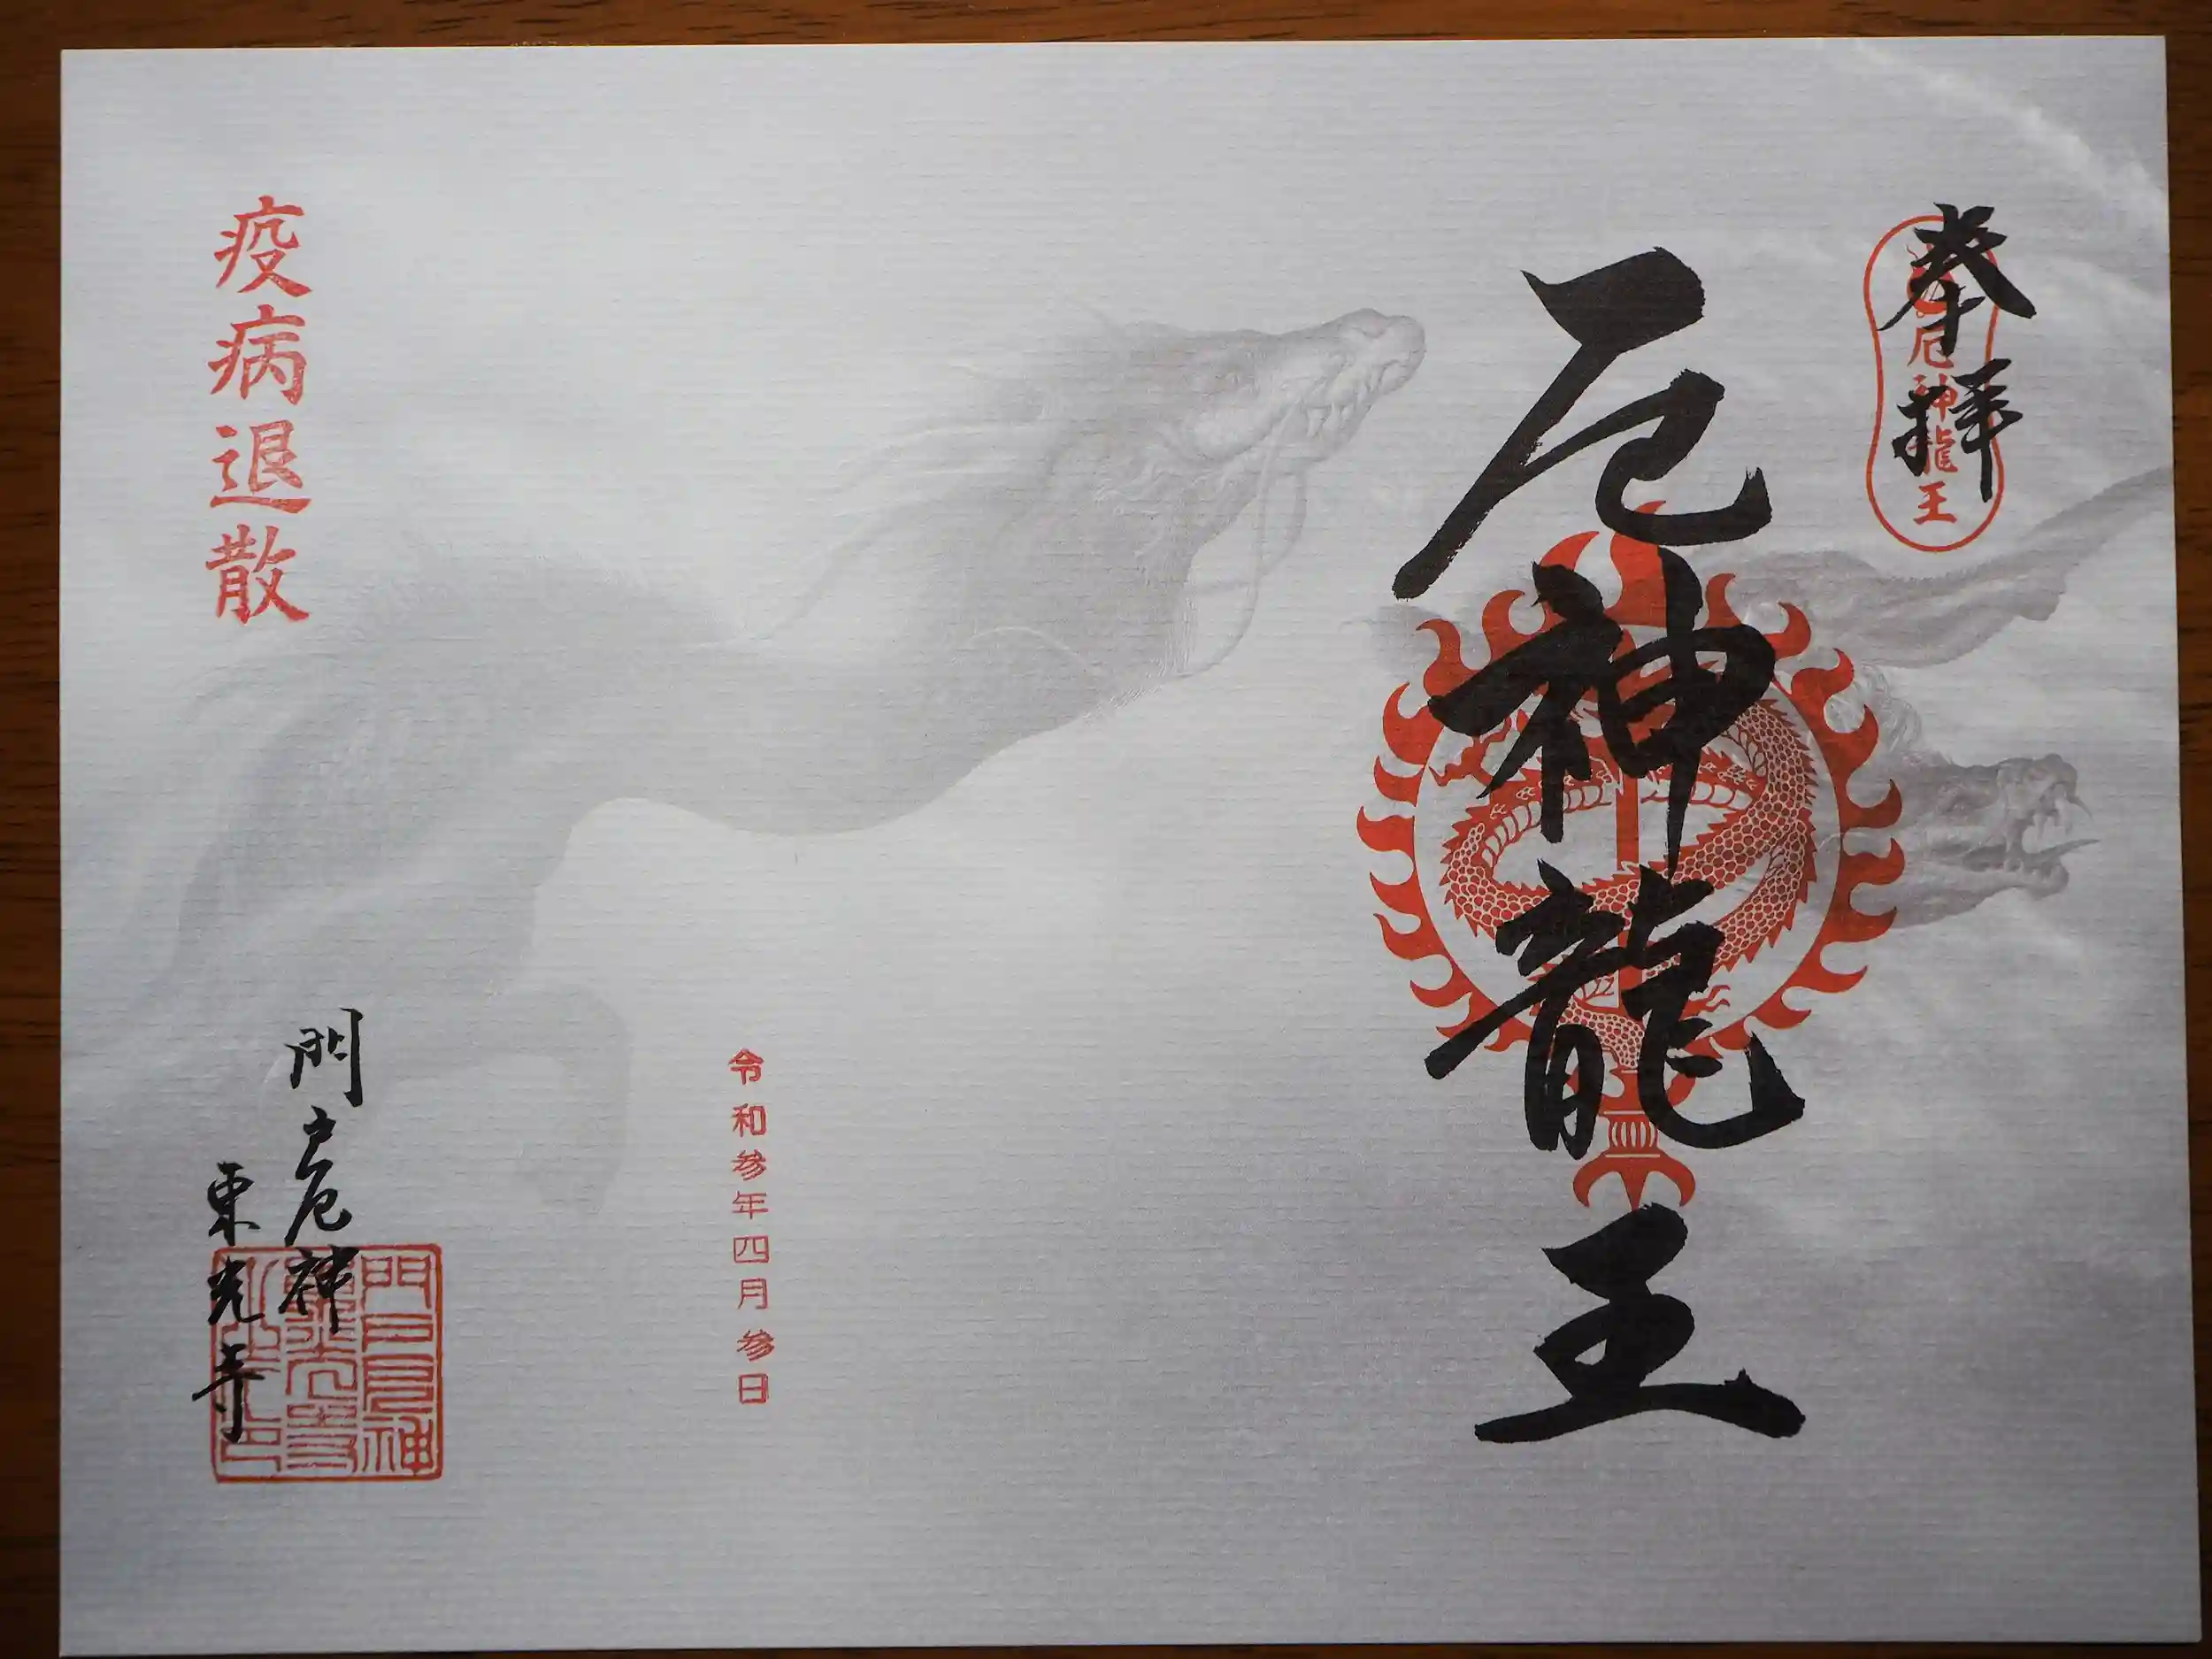 奉拝
厄神龍王
厄神龍王
令和参年四月参日
疫病退散
門戸厄神
東光寺
門戸厄神
東光寺